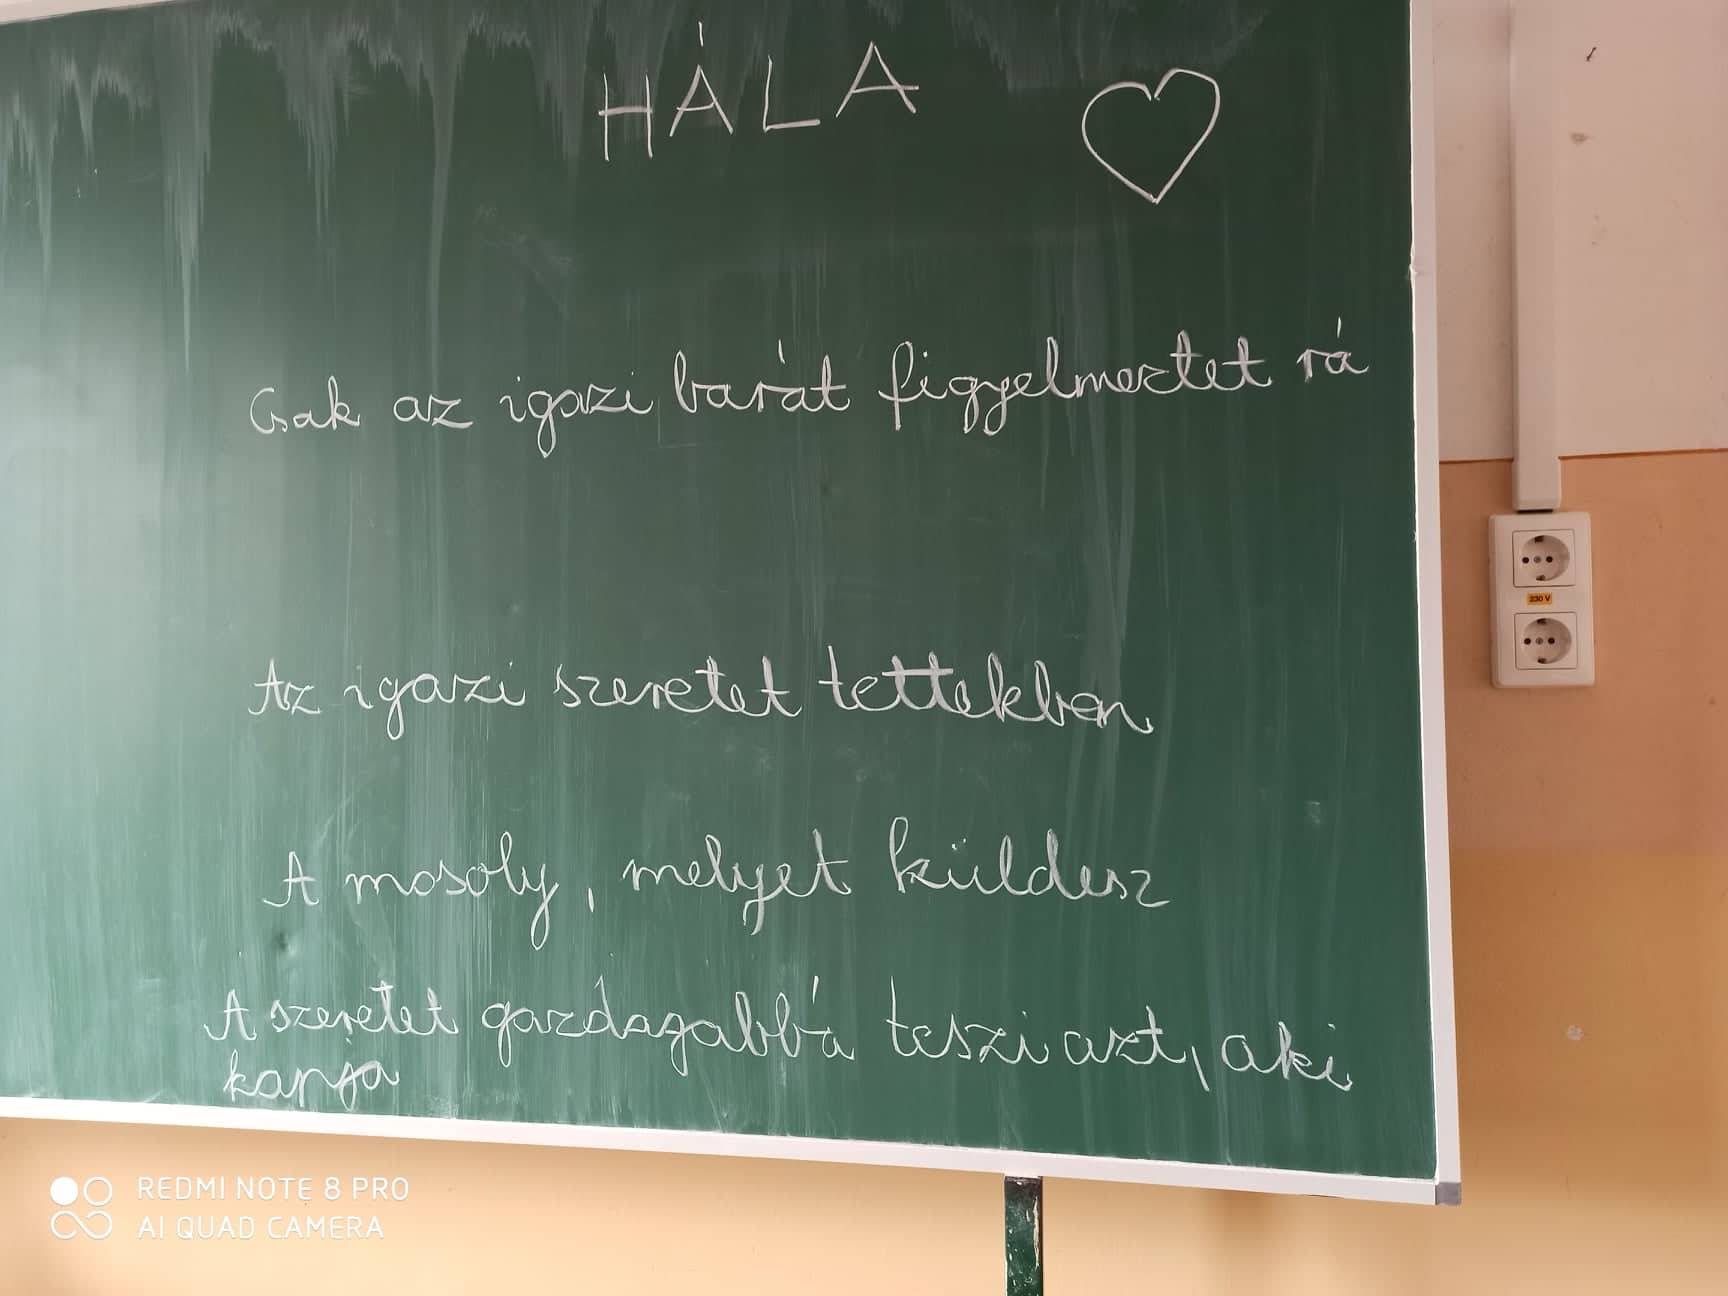 HÁLA
Csak az igazi barát figyelmeztet rá
Az igazi szeretet tettekben
A mosoly, melyet küldesz
A szeretet gazdagabbá teszi azt, aki
kapja
230 V
REDMI NOTE 8 PRO
AI QUAD CAMERA